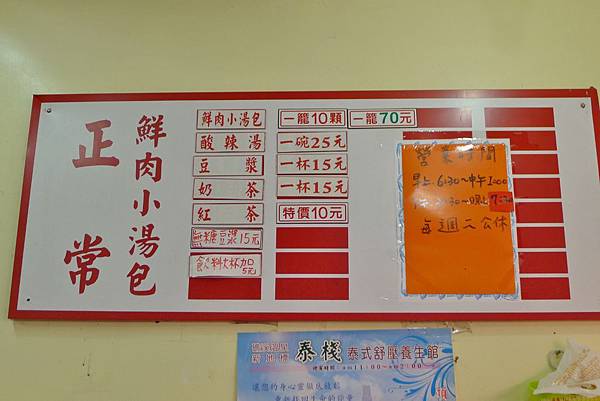 正常
鮮肉小湯包
鮮肉小湯包 一籠10顆 一籠70元
酸辣湯 一碗25元
豆漿 一杯15元
奶茶 一杯15元
紅茶 特價10元
無糖豆漿15元
飲料杯加
5元
營業時間
早上6:30~中午1:00
每週二公休
泰棧 泰式舒壓養生館
營業時間：am11:00~am2:00
讓您的身心靈徹底放鬆